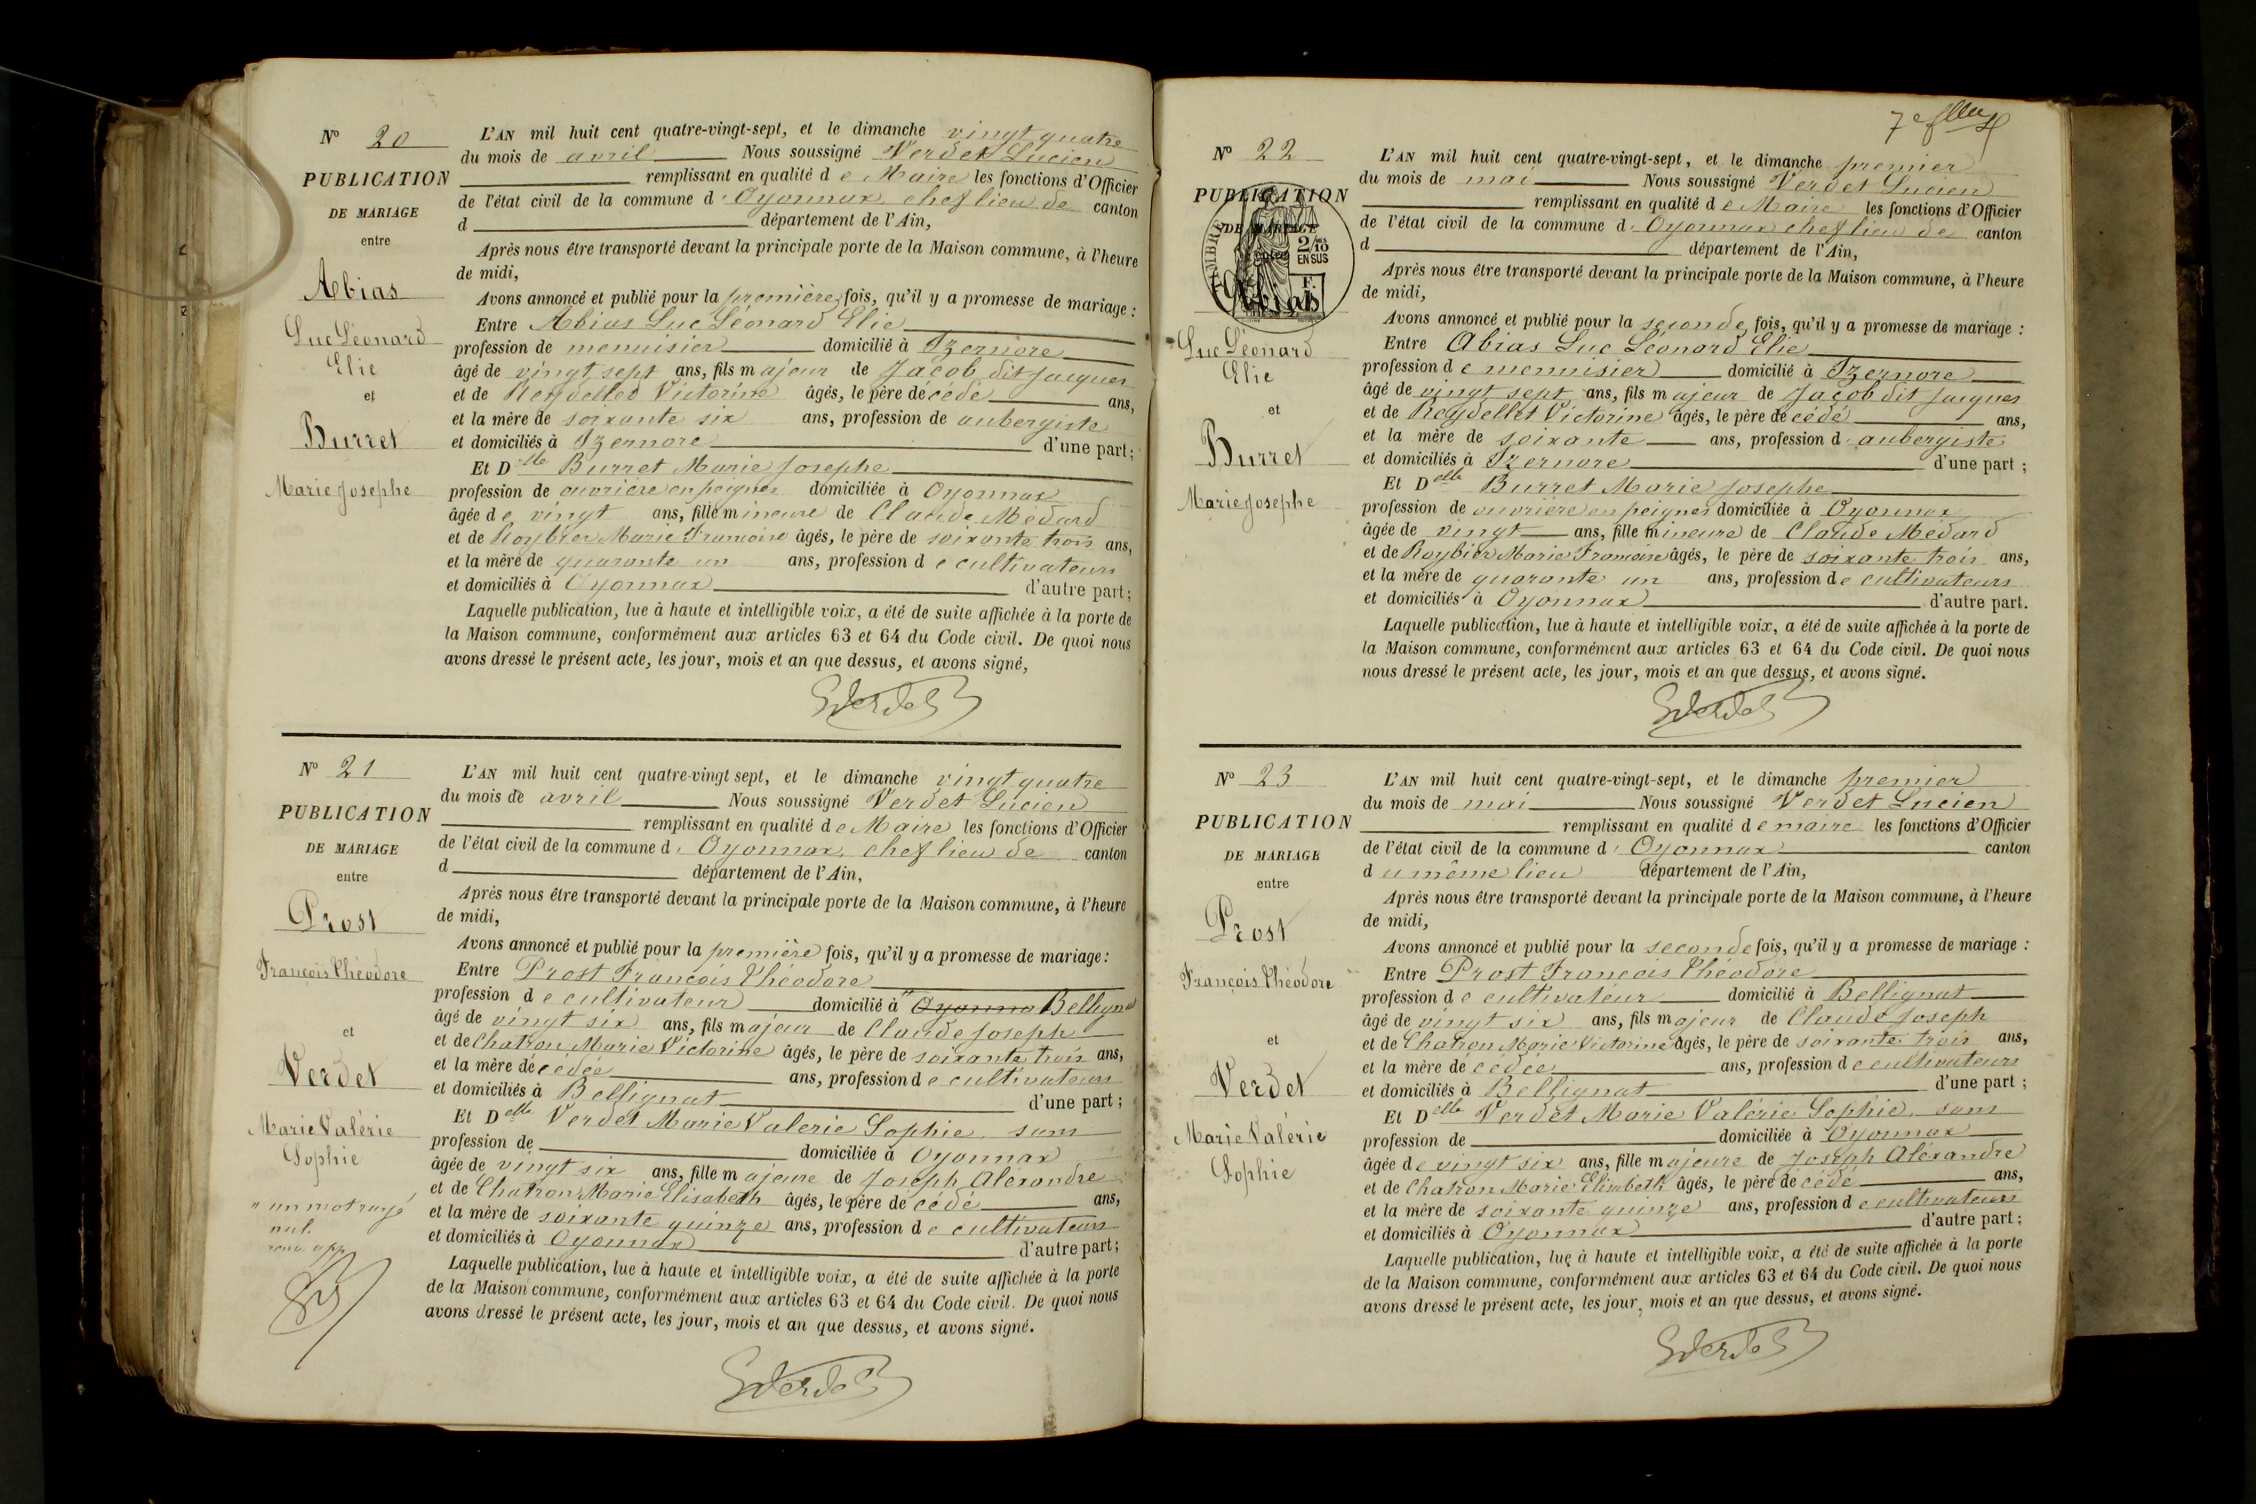 N° 20
PUBLICATION
DE MARIAGE
entre
Abias
Luc Léonard
Elie
et
Burret
Marie Josephe
L'AN mil huit cent quatre-vingt-sept, et le dimanche vingt quatre
du mois de avril Nous soussigné Verdet Lucien
remplissant en qualité de Maire les fonctions d'Officier
de l'état civil de la commune d' Oyonnax chef lieu de canton
d département de l'Ain,
Après nous être transporté devant la principale porte de la Maison commune, à l'heure
de midi,
Avons annoncé et publié pour la première fois, qu'il y a promesse de mariage :
Entre Abias Luc Léonard Elie
profession de menuisier domicilié à Izernore
âgé de vingt sept ans, fils majeur de Jacob dit Jacques
et de Reydellet Victorine âgés, le père décédé ans,
et la mère de soixante six ans, profession de aubergiste
et domiciliés à Izernore d'une part ;
Et Delle Burret Marie Josephe
profession de ouvrière en peignes domiciliée à Oyonnax
âgée de vingt ans, fille mineure de Claude Médard
et de Roybier Marie Françoise âgés, le père de soixante trois ans,
et la mère de quarante un ans, profession de cultivateurs
et domiciliés à Oyonnax d'autre part ;
Laquelle publication, lue à haute et intelligible voix, a été de suite affichée à la porte de
la Maison commune, conformément aux articles 63 et 64 du Code civil. De quoi nous
avons dressé le présent acte, les jour, mois et an que dessus, et avons signé,
Verdet
N° 21
PUBLICATION
DE MARIAGE
entre
Prost
François Théodore
et
Verdet
Marie Valérie
Sophie
" un mot rayé
nul.
L'AN mil huit cent quatre-vingt sept, et le dimanche vingt quatre
du mois de avril Nous soussigné Verdet Lucien
remplissant en qualité de Maire les fonctions d'Officier
de l'état civil de la commune d' Oyonnax chef lieu de canton
d département de l'Ain,
Après nous être transporté devant la principale porte de la Maison commune, à l'heure
de midi,
Avons annoncé et publié pour la première fois, qu'il y a promesse de mariage :
Entre Prost François Théodore
profession de cultivateur domicilié à " Oyonna Bellignat
âgé de vingt six ans, fils majeur de Claude Joseph
et de Chatron Marie Victorine âgés, le père de soixante trois ans,
et la mère décédée ans, profession de cultivateurs
et domiciliés à Bellignat d'une part ;
Et Delle Verdet Marie Valérie Sophie sans
profession de domiciliée à Oyonnax
âgée de vingt six ans, fille majeure de Joseph Alexandre
et de Chatron Marie Elisabeth âgés, le père décédé ans,
et la mère de soixante quinze ans, profession de cultivateurs
et domiciliés à Oyonnax d'autre part ;
Laquelle publication, lue à haute et intelligible voix, a été de suite affichée à la porte
de la Maison commune, conformément aux articles 63 et 64 du Code civil. De quoi nous
avons dressé le présent acte, les jour, mois et an que dessus, et avons signé.
Verdet
7e
N° 22
PUBLICATION
DE MARIAGE
entre
TIMBRE
2/10
EN SUS
Abias
Luc Léonard
Elie
et
Burret
Marie Josephe
L'AN mil huit cent quatre-vingt-sept, et le dimanche premier
du mois de mai Nous soussigné Verdet Lucien
remplissant en qualité de Maire les fonctions d'Officier
de l'état civil de la commune d' Oyonnax chef lieu de canton
d département de l'Ain,
Après nous être transporté devant la principale porte de la Maison commune, à l'heure
de midi,
Avons annoncé et publié pour la seconde fois, qu'il y a promesse de mariage :
Entre Abias Luc Léonard Elie
profession de menuisier domicilié à Izernore
âgé de vingt sept ans, fils majeur de Jacob dit Jacques
et de Reydellet Victorine âgés, le père décédé ans,
et la mère de soixante ans, profession d' aubergiste
et domiciliés à Izernore d'une part ;
Et Delle Burret Marie Josephe
profession de ouvrière en peignes domiciliée à Oyonnax
âgée de vingt ans, fille mineure de Claude Médard
et de Roybier Marie Françoise âgés, le père de soixante trois ans,
et la mère de quarante un ans, profession de cultivateurs
et domiciliés à Oyonnax d'autre part.
Laquelle publication, lue à haute et intelligible voix, a été de suite affichée à la porte de
la Maison commune, conformément aux articles 63 et 64 du Code civil. De quoi nous
nous dressé le présent acte, les jour, mois et an que dessus, et avons signé.
Verdet
N° 23
PUBLICATION
DE MARIAGE
entre
Prost
François Théodore
et
Verdet
Marie Valérie
Sophie
L'AN mil huit cent quatre-vingt-sept, et le dimanche premier
du mois de mai Nous soussigné Verdet Lucien
remplissant en qualité de maire les fonctions d'Officier
de l'état civil de la commune d' Oyonnax canton
du même lieu département de l'Ain,
Après nous être transporté devant la principale porte de la Maison commune, à l'heure
de midi,
Avons annoncé et publié pour la seconde fois, qu'il y a promesse de mariage :
Entre Prost François Théodore
profession de cultivateur domicilié à Bellignat
âgé de vingt six ans, fils majeur de Claude Joseph
et de Chatron Marie Victorine âgés, le père de soixante trois ans,
et la mère décédée ans, profession de cultivateurs
et domiciliés à Bellignat d'une part ;
Et Delle Verdet Marie Valérie Sophie sans
profession de domiciliée à Oyonnax
âgée de vingt six ans, fille majeure de Joseph Alexandre
et de Chatron Marie Elisabeth âgés, le père décédé ans,
et la mère de soixante quinze ans, profession de cultivateurs
et domiciliés à Oyonnax d'autre part ;
Laquelle publication, lue à haute et intelligible voix, a été de suite affichée à la porte
de la Maison commune, conformément aux articles 63 et 64 du Code civil. De quoi nous
avons dressé le présent acte, les jour, mois et an que dessus, et avons signé.
Verdet